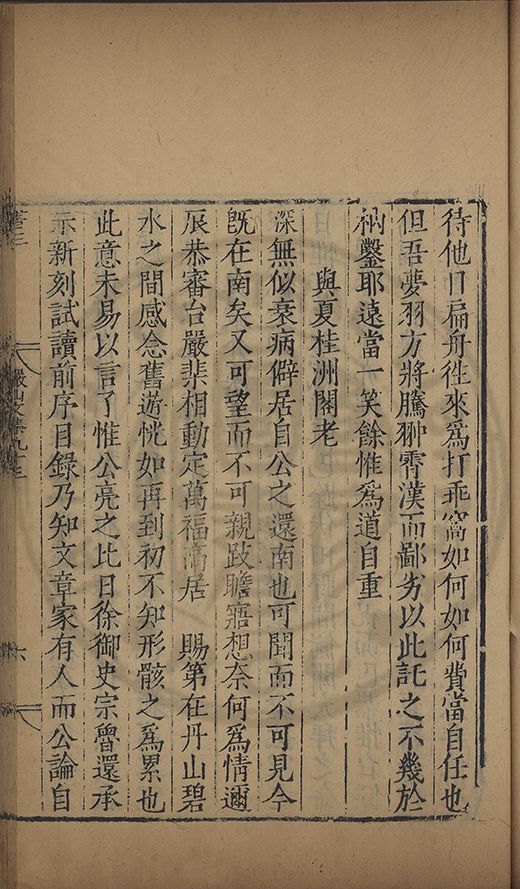 待他日扁舟徃來爲打乖窩如何如何費當自任也
但吾夢羽方將騰翀霄漢而鄙劣以此託之不幾於
枘鑿耶遠當一笑餘惟爲道自重
與夏桂洲閣老
深無似衰病僻居自公之還南也可聞而不可見今
旣在南矣又可望而不可親跂瞻寤想奈何爲情邇
辰恭審台嚴棐相動定萬福高居 賜第在丹山碧
水之間感念舊遊恍如再到初不知形骸之爲累也
此意未易以言了惟公亮之比日徐御史宗魯還承
示新刻試讀前序目錄乃知文章家有人而公論自